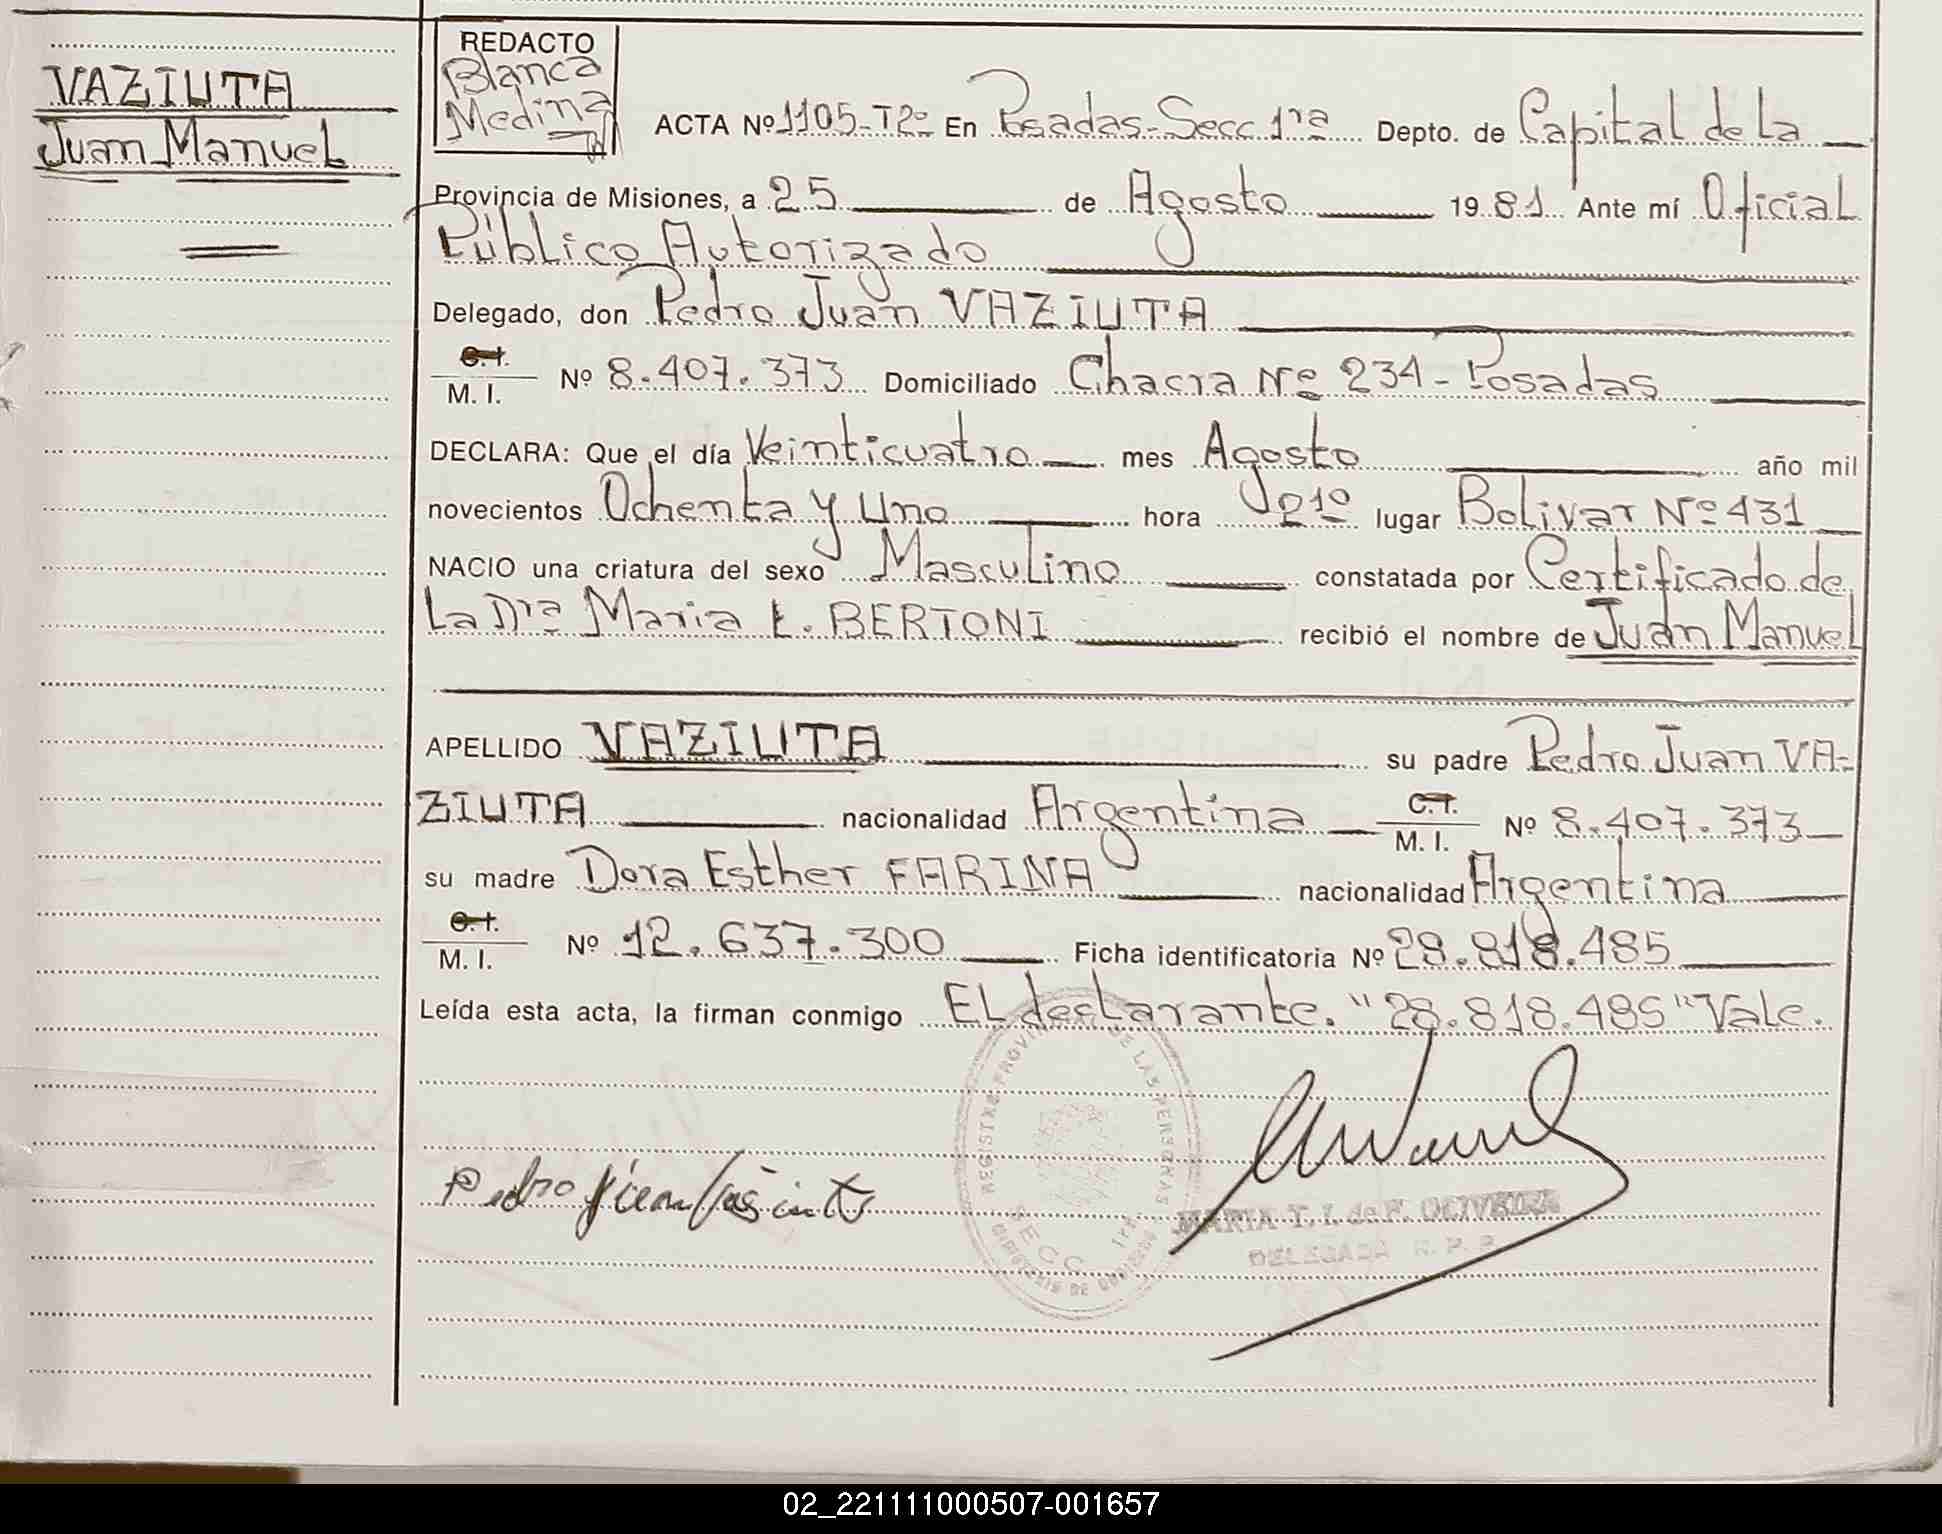 VAZIUTA
Juan Manuel
REDACTO
Blanca
Medina
ACTA Nº 1105-Tº2º En Posadas-Secc 1ra Depto. de Capital de La
Provincia de Misiones, a 25 de Agosto 1981 Ante mí Oficial
Público Autorizado
Delegado, don Pedro Juan VAZIUTA
C.I.
M. I. Nº 8.407.373 Domiciliado Chacra Nº 234-Posadas
DECLARA: Que el día Veinticuatro mes Agosto año mil
novecientos Ochenta y Uno hora lugar Bolivar Nº 431
NACIO una criatura del sexo Masculino constatada por Certificado de
La Dra Maria E. BERTONI recibió el nombre de Juan Manuel
APELLIDO VAZIUTA su padre Pedro Juan VA-
ZIUTA nacionalidad Argentina C.I. M. I. Nº 8.407.373
su madre Dora Esther FARINA nacionalidad Argentina
C.I.
M. I. Nº 12.637.300 Ficha identificatoria Nº 28.818.485
Leída esta acta, la firman conmigo EL declarante. "28.818.485" Vale.
REGISTRO PROVINCIAL DE LAS PERSONAS
SECC. 1RA
Pedro Juan
MARIA T. I. de F. OLIVEIRA
DELEGADA R. P. P.
02_221111000507-001657